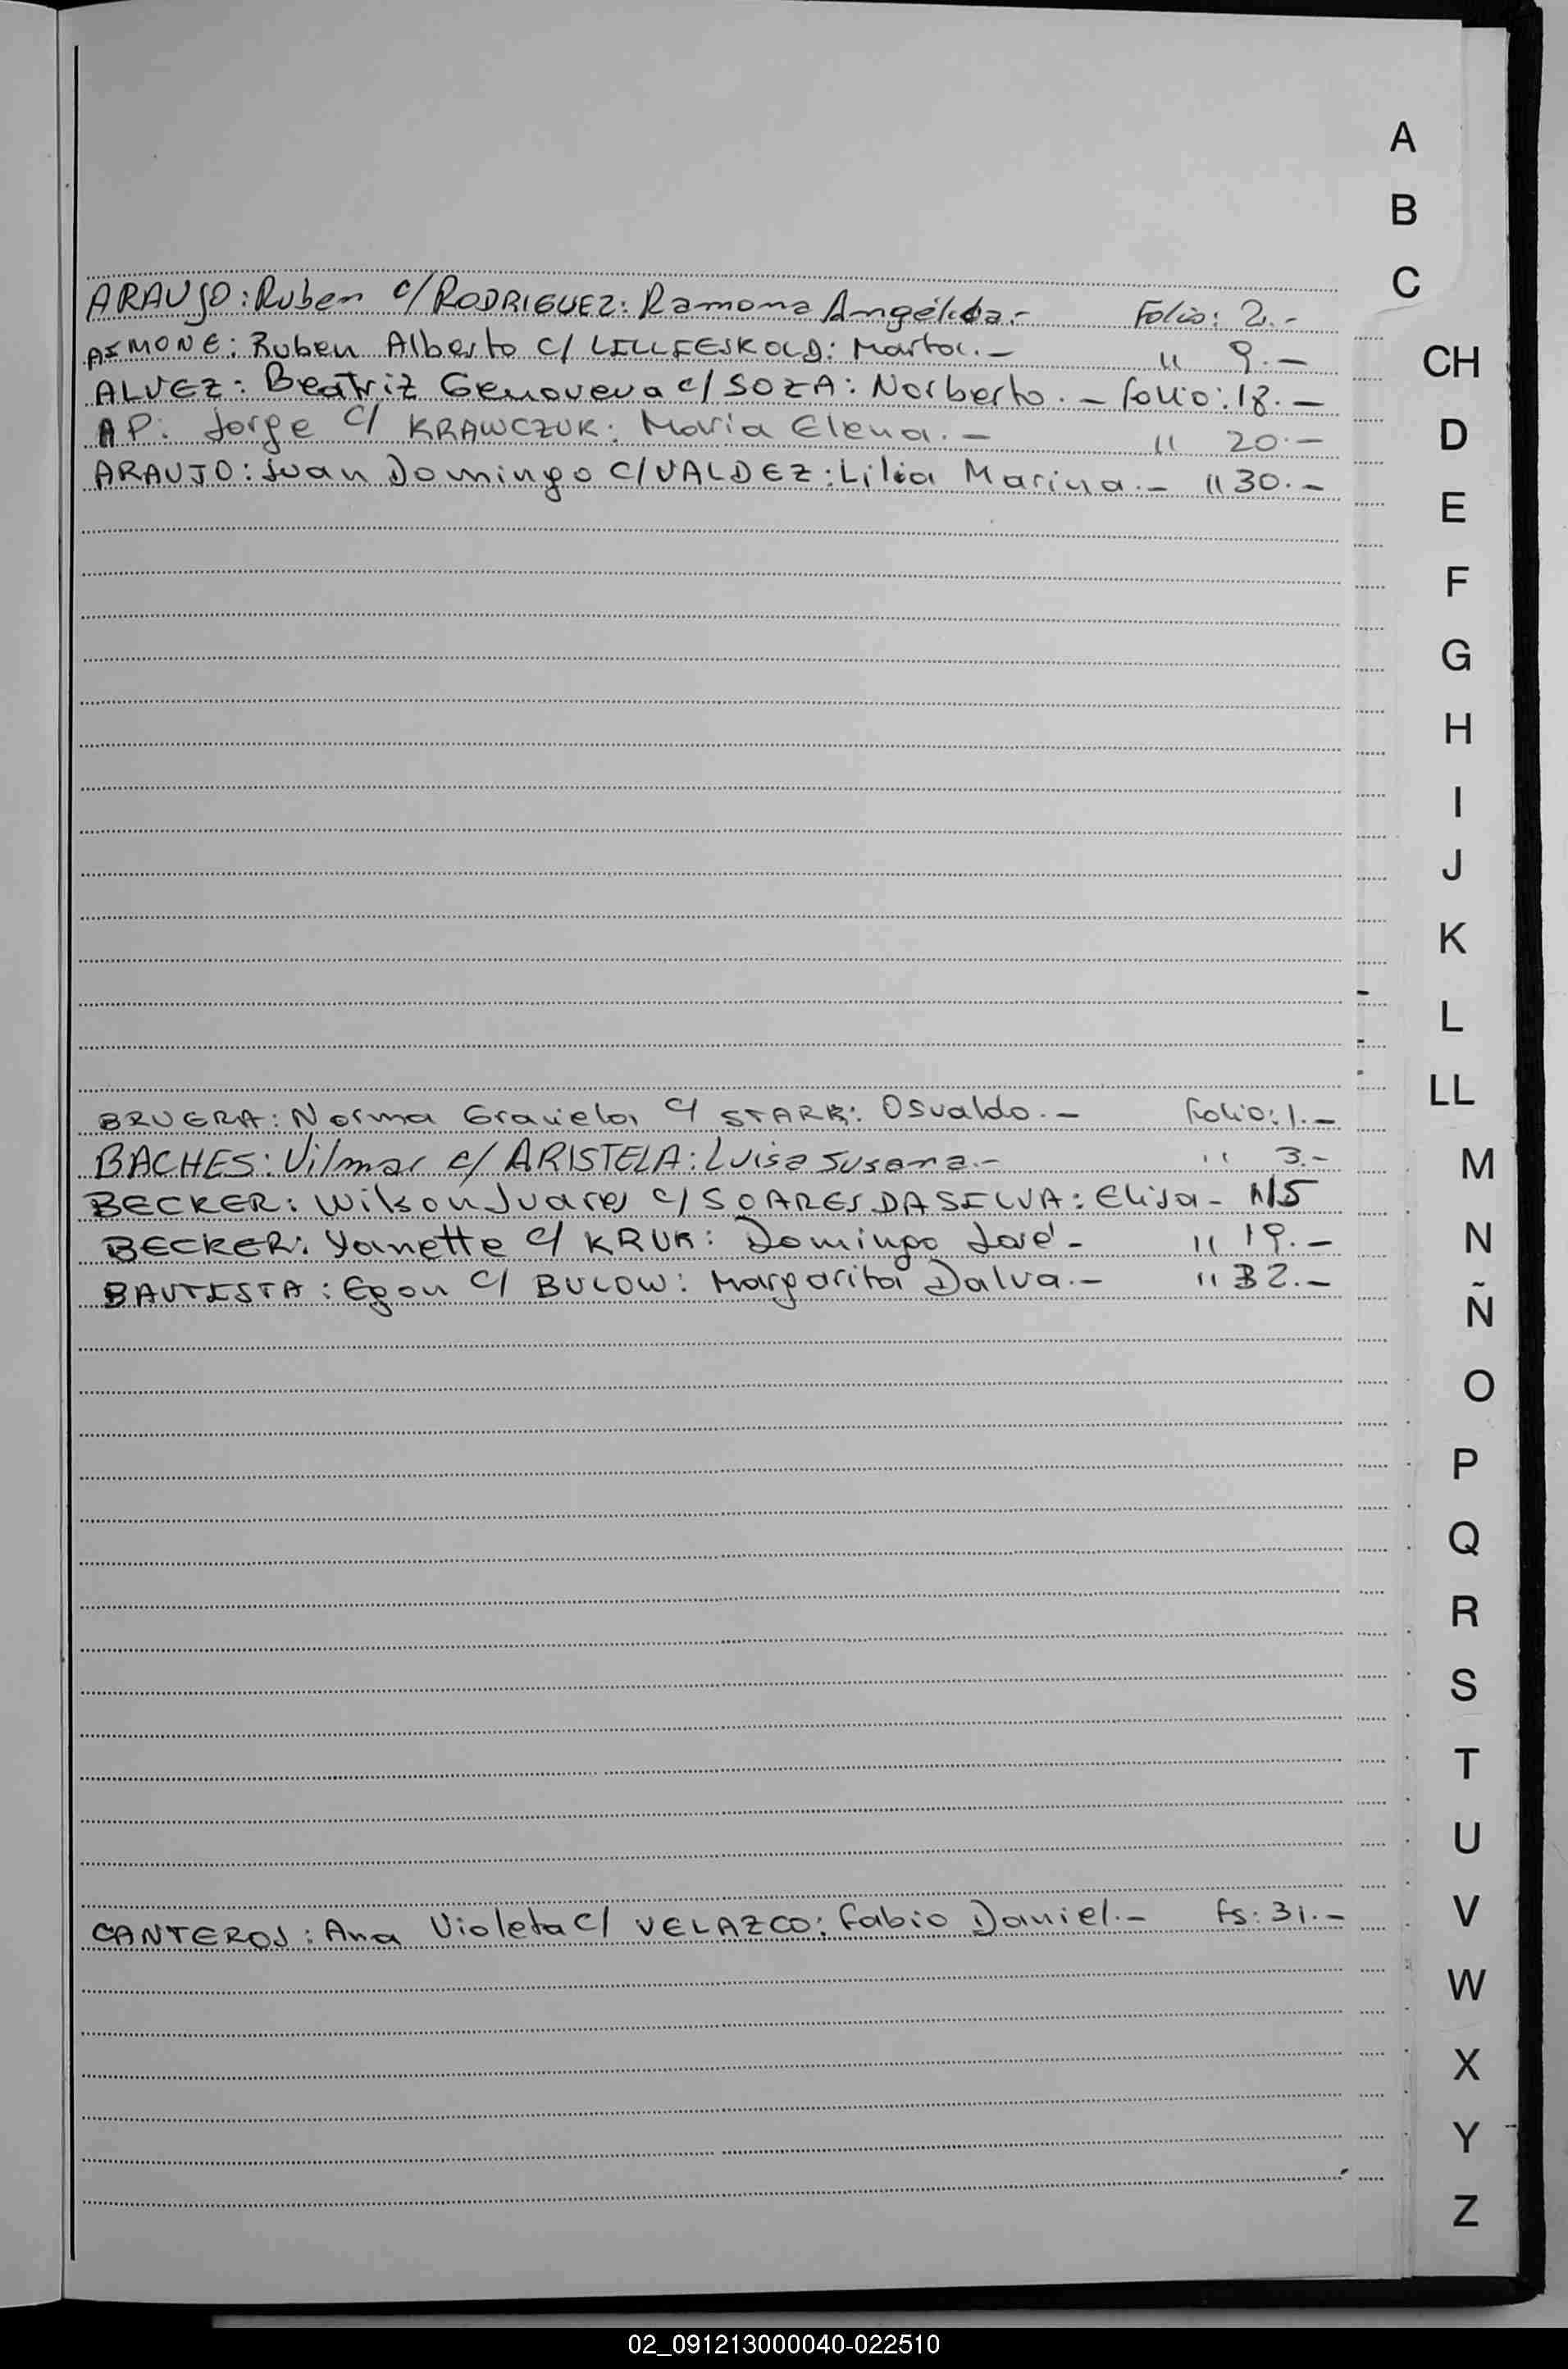 A
B
C
CH
D
E
F
G
H
I
J
K
L
LL
M
N
Ñ
O
P
Q
R
S
T
U
V
W
X
Y
Z
ARAUJO: Ruben c/ RODRIGUEZ: Ramona Angélica.- Folio: 2.-
AIMONE: Ruben Alberto c/ LILLIESKOLD: Marta.- " 9.-
ALVEZ: Beatriz Genoveva c/ SOZA: Norberto.- folio: 18.-
AP: Jorge c/ KRAWCZUK: Maria Elena.- " 20.-
ARAUJO: Juan Domingo c/ VALDEZ: Lilia Marina.- " 30.-
BRUERA: Norma Graciela c/ STARK: Osvaldo.- Folio: 1.-
BACHES: Vilmar c/ ARISTELA: Luisa Susana.- " 3.-
BECKER: Wilson Juares c/ SOARES DA SILVA: Elisa- " 15
BECKER: Yanette c/ KRUK: Domingo José- " 19.-
BAUTISTA: Egon c/ BULOW: Margarita Dalva.- " 32.-
CANTEROS: Ana Violeta c/ VELAZCO: Fabio Daniel.- fs: 31.-
02_091213000040-022510